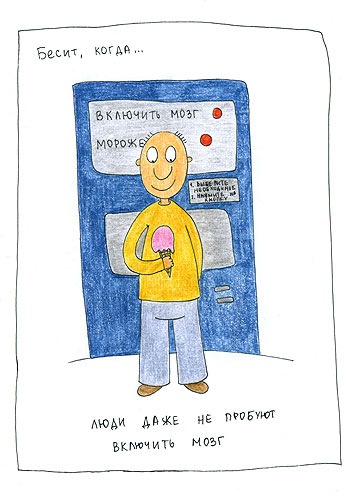 Бесит, когда...
ВКЛЮЧИТЬ МОЗГ
МОРОЖЕ
1. ВЫБЕРИТЕ
НЕОБХОДИМОЕ
2. НАЖМИТЕ НА
КНОПКУ
ЛЮДИ ДАЖЕ НЕ ПРОБУЮТ
ВКЛЮЧИТЬ МОЗГ